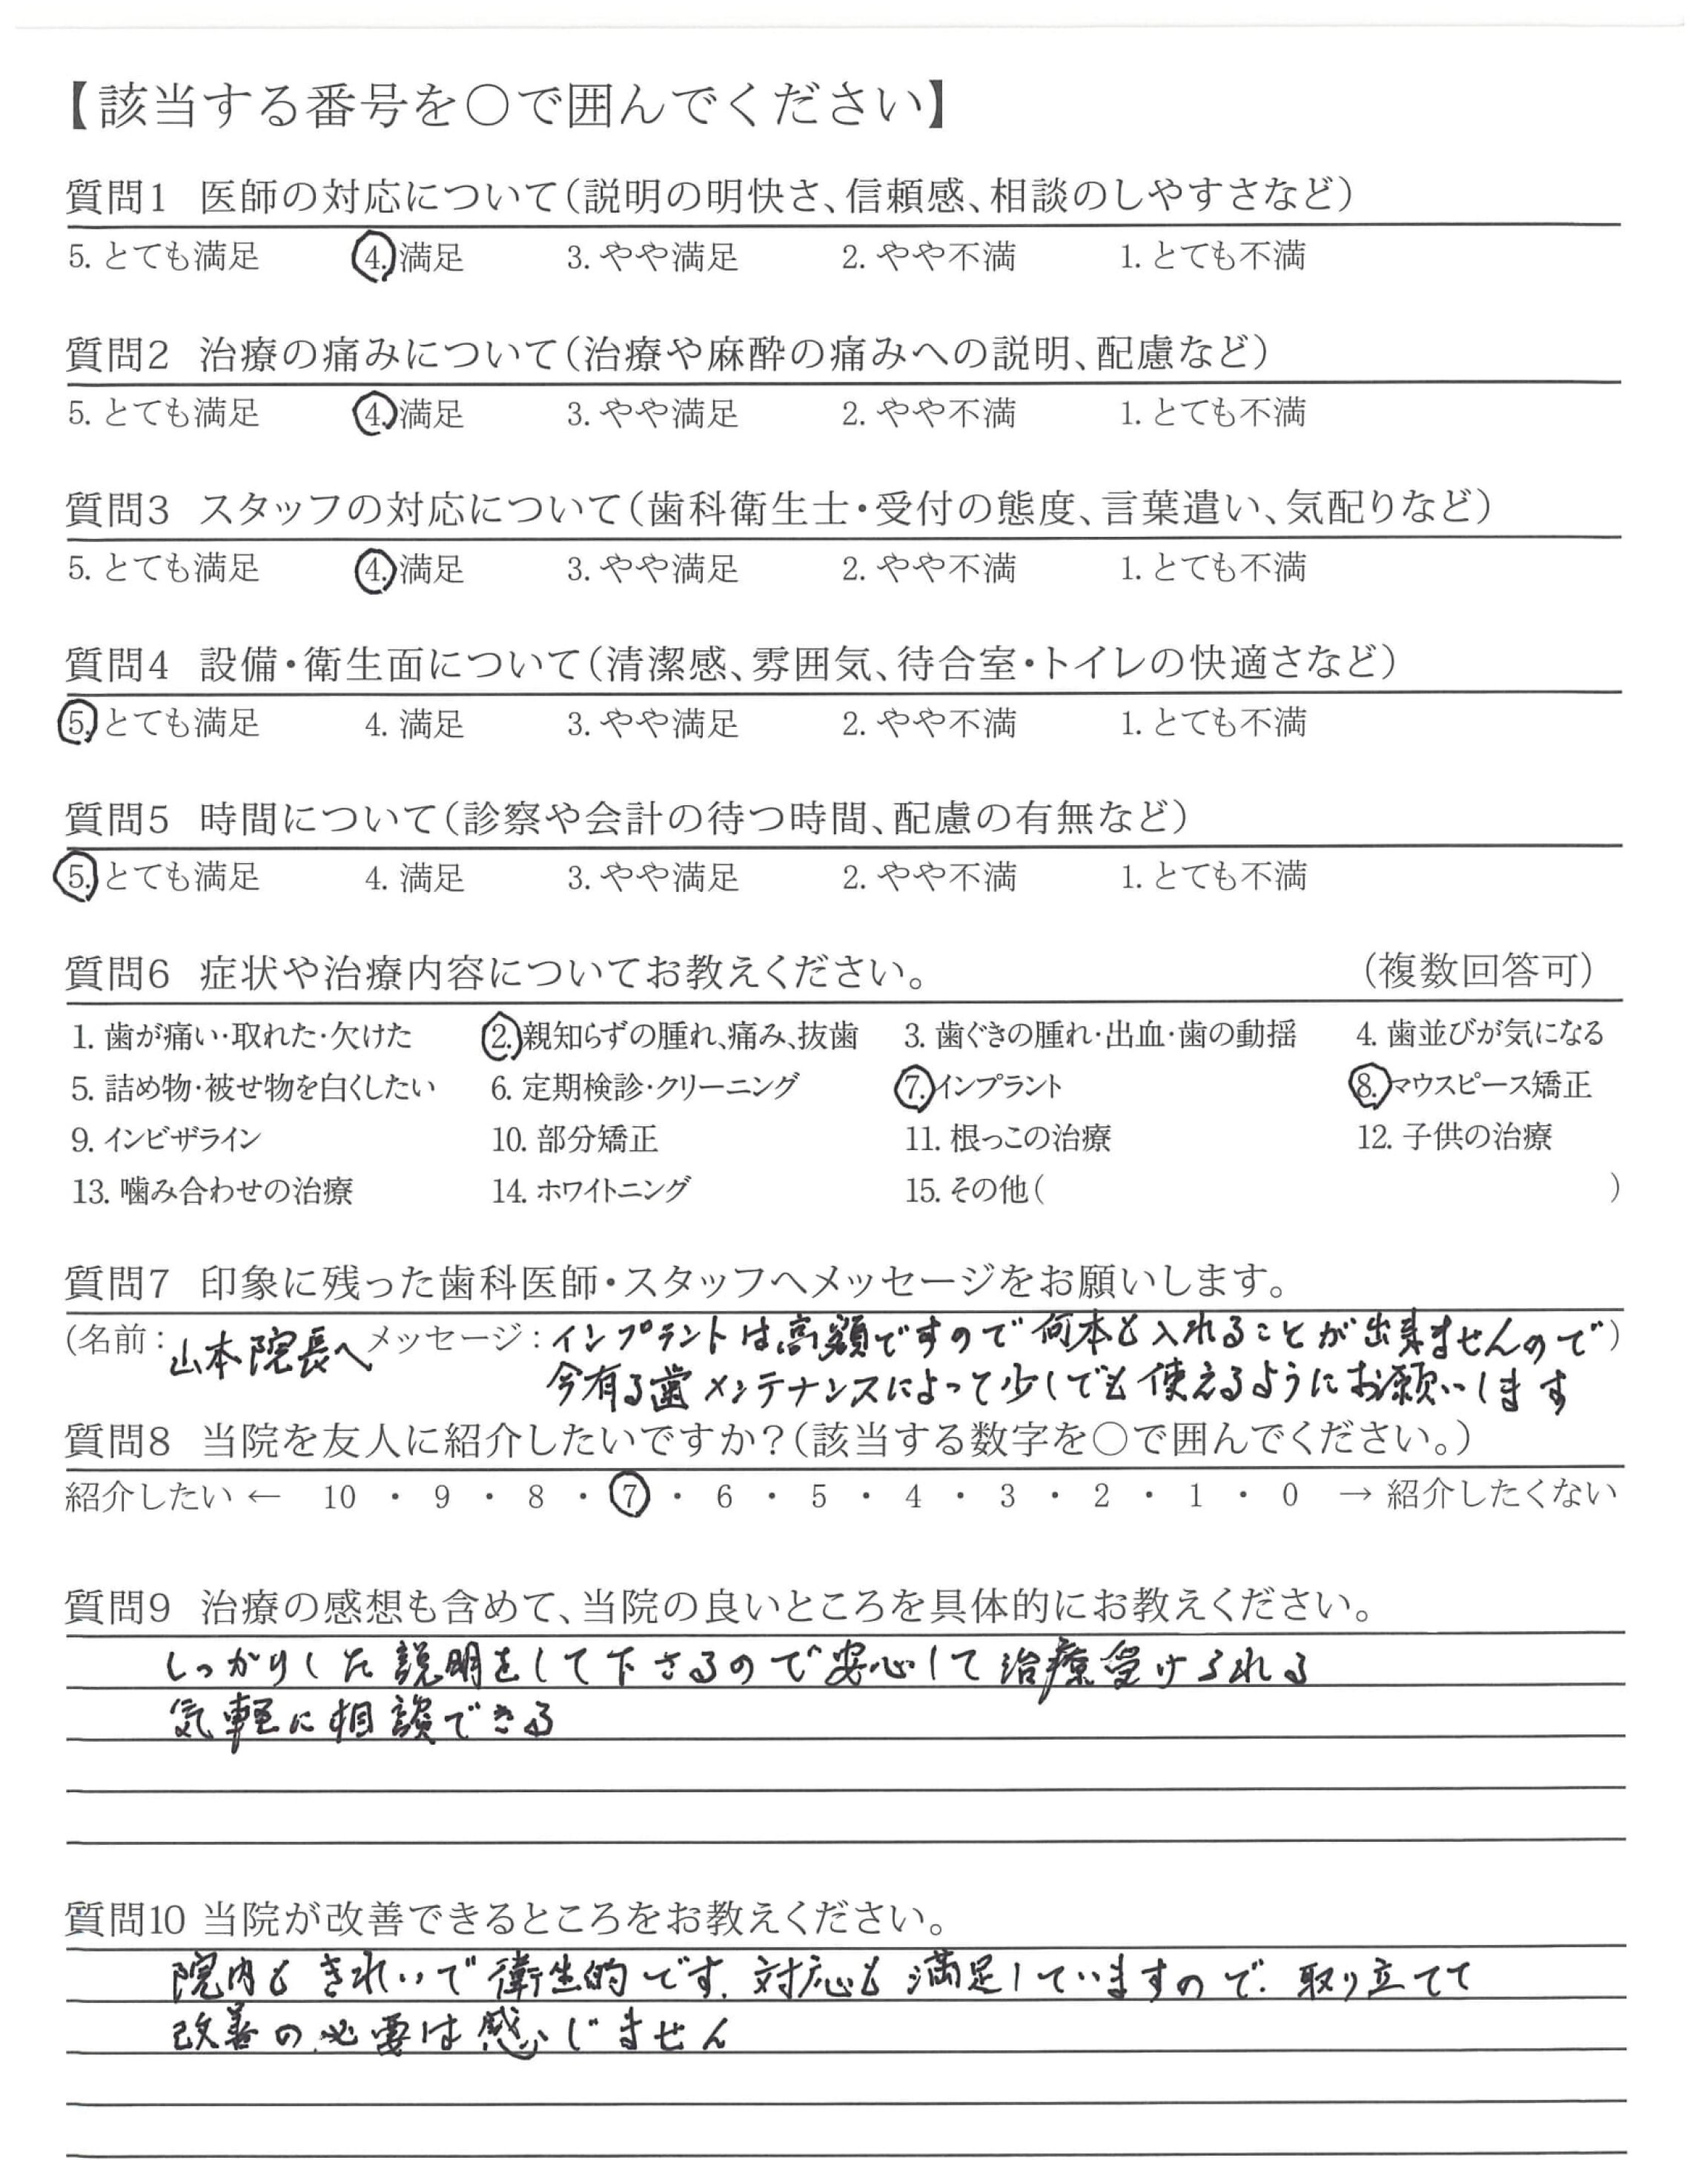 【該当する番号を〇で囲んでください】
質問1 医師の対応について(説明の明快さ、信頼感、相談のしやすさなど)
5. とても満足 4. 満足 3. やや満足 2. やや不満 1. とても不満
質問2 治療の痛みについて(治療や麻酔の痛みへの説明、配慮など)
5. とても満足 4. 満足 3. やや満足 2. やや不満 1. とても不満
質問3 スタッフの対応について(歯科衛生士・受付の態度、言葉遣い、気配りなど)
5. とても満足 4. 満足 3. やや満足 2. やや不満 1. とても不満
質問4 設備・衛生面について(清潔感、雰囲気、待合室・トイレの快適さなど)
5. とても満足 4. 満足 3. やや満足 2. やや不満 1. とても不満
質問5 時間について(診察や会計の待つ時間、配慮の有無など)
5. とても満足 4. 満足 3. やや満足 2. やや不満 1. とても不満
質問6 症状や治療内容についてお教えください。 (複数回答可)
1. 歯が痛い・取れた・欠けた 2. 親知らずの腫れ、痛み、抜歯 3. 歯ぐきの腫れ・出血・歯の動揺 4. 歯並びが気になる
5. 詰め物・被せ物を白くしたい 6. 定期検診・クリーニング 7. インプラント 8. マウスピース矯正
9. インビザライン 10. 部分矯正 11. 根っこの治療 12. 子供の治療
13. 噛み合わせの治療 14. ホワイトニング 15. その他( )
質問7 印象に残った歯科医師・スタッフへメッセージをお願いします。
(名前：山本院長へ メッセージ：インプラントは高額ですので何本も入れることが出来ませんので)
今有る歯メンテナンスによって少しでも使えるようにお願いします
質問8 当院を友人に紹介したいですか？(該当する数字を〇で囲んでください。)
紹介したい ← 10 ・ 9 ・ 8 ・ 7 ・ 6 ・ 5 ・ 4 ・ 3 ・ 2 ・ 1 ・ 0 → 紹介したくない
質問9 治療の感想も含めて、当院の良いところを具体的にお教えください。
しっかりした説明をして下さるので安心して治療受けられる
気軽に相談できる
質問10 当院が改善できるところをお教えください。
院内もきれいで衛生的です。対応も満足していますので、取り立てて
改善の必要は感じません